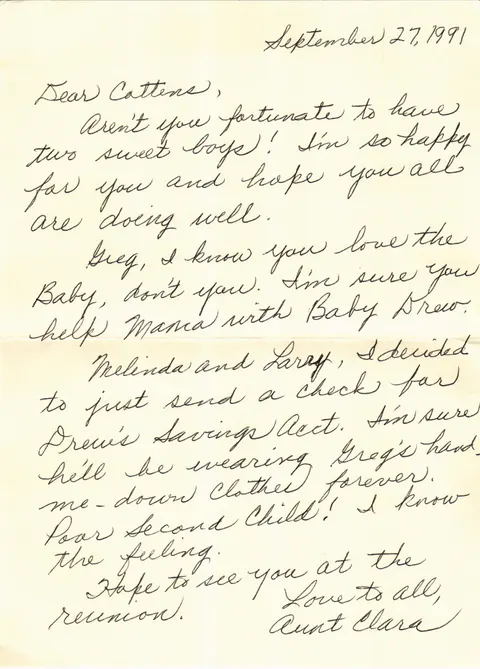 September 27, 1991
Dear Cottens,
Aren't you fortunate to have
two sweet boys! I'm so happy
for you and hope you all
are doing well.
Greg, I know you love the
Baby, don't you. I'm sure you
help Mama with Baby Drew.
Melinda and Larry, I decided
to just send a check for
Drew's Savings Acct. I'm sure
he'll be wearing Greg's hand-
me-down clothes forever.
Poor Second Child! I know
the feeling.
Hope to see you at the
reunion.
Love to all,
Aunt Clara